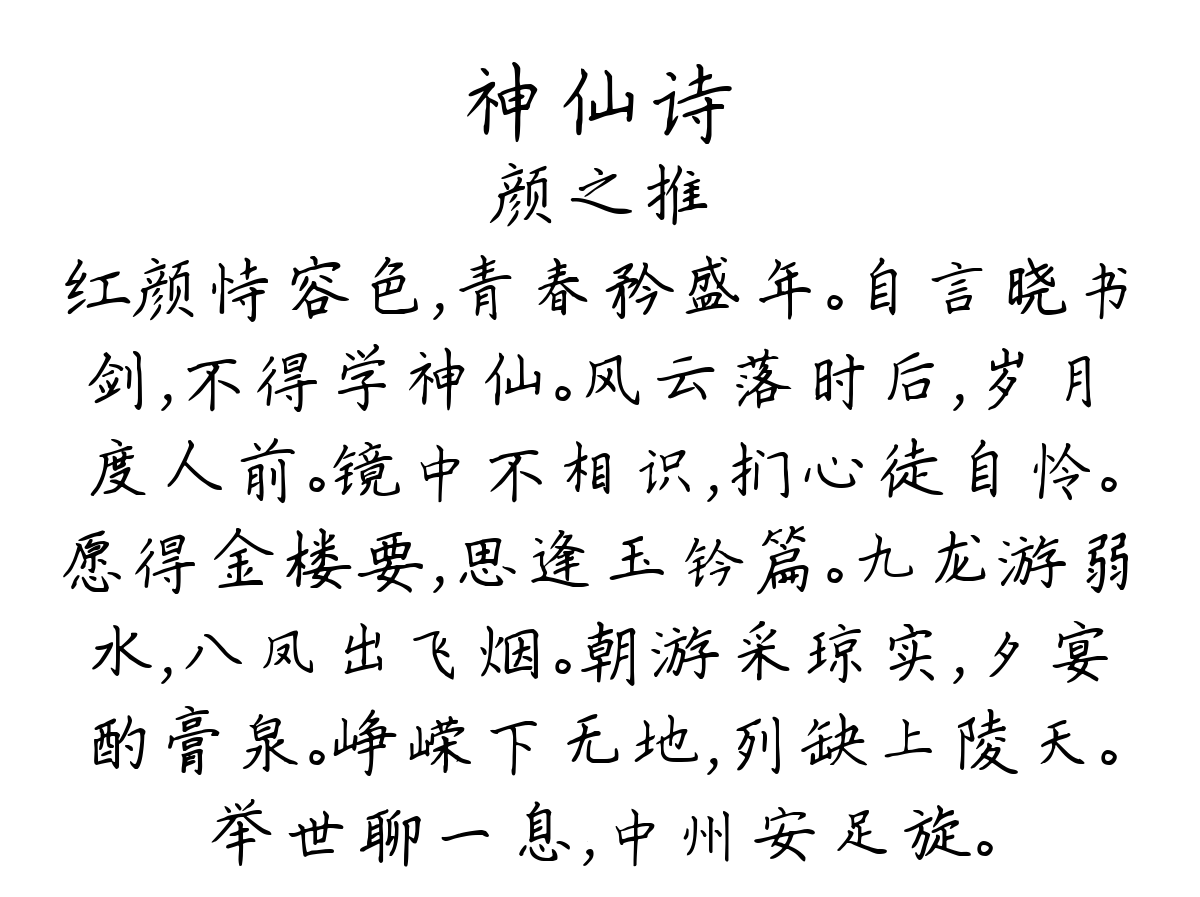 神仙诗
颜之推
红颜恃容色,青春矜盛年。自言晓书
剑,不得学神仙。风云落时后,岁月
度人前。镜中不相识,扪心徒自怜。
愿得金楼要,思逢玉钤篇。九龙游弱
水,八凤出飞烟。朝游采琼实,夕宴
酌膏泉。峥嵘下无地,列缺上陵天。
举世聊一息,中州安足旋。